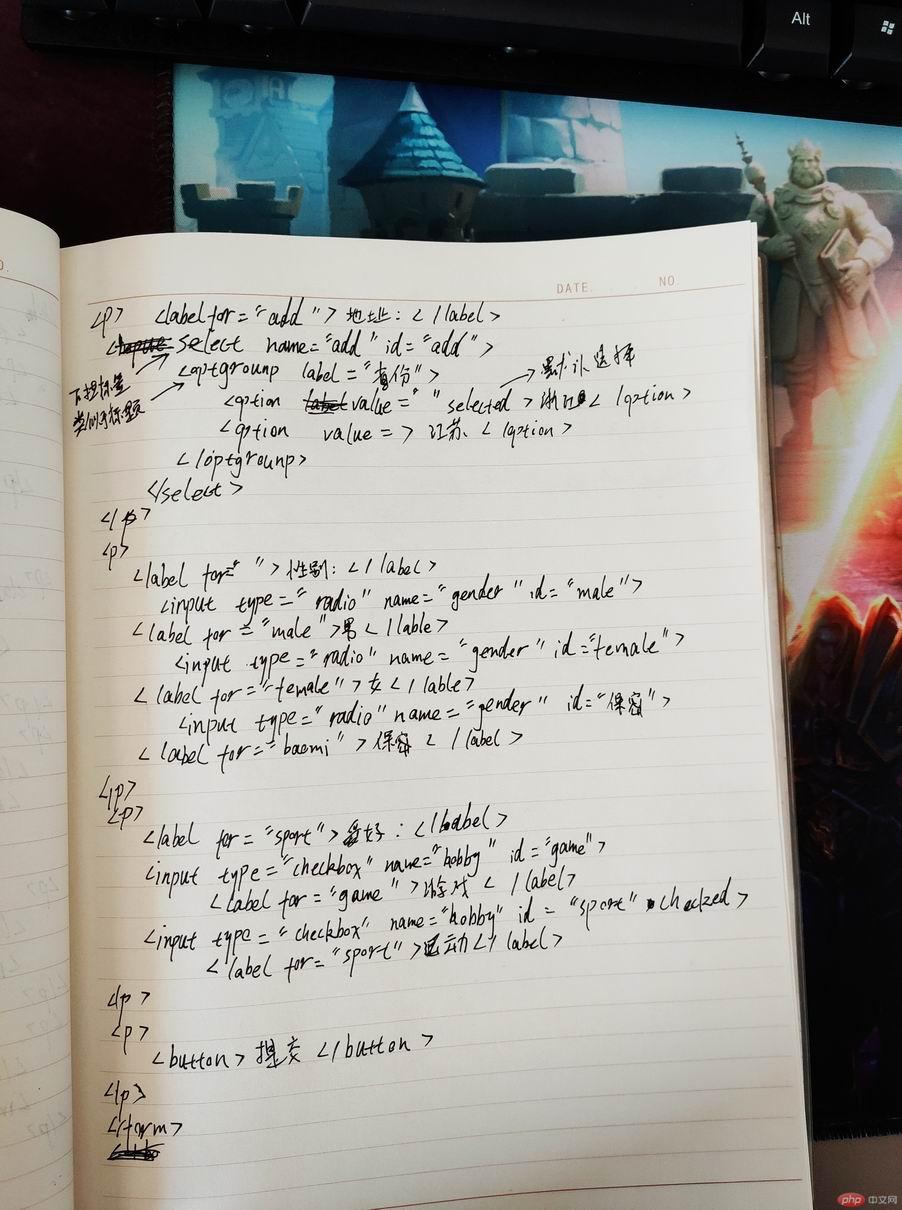 Alt
DATE. NO.
<p> <label for="add"> 地址: </label>
< select name="add" id="add">
<optgrounp label="省份"> 默认选择
下拉标量
类似于标题
<option value=" " selected> 浙江 </option>
<option value=> 江苏 </option>
</optgrounp>
</select>
</p>
<p>
<label for=" "> 性别: </label>
<input type="radio" name="gender" id="male">
<label for="male">男</lable>
<input type="radio" name="gender" id="female">
<label for="female">女</lable>
<input type="radio" name="gender" id="保密">
<label for="baomi">保密</label>
</p>
<p>
<label for="sport">爱好: </label>
input type="checkbox" name="hobby" id="game">
<label for="game">游戏</label>
<input type="checkbox" name="hobby" id="sport" checked>
<label for="sport">运动</label>
</p>
<p>
<button>提交</button>
</p>
</form>
php 中文网